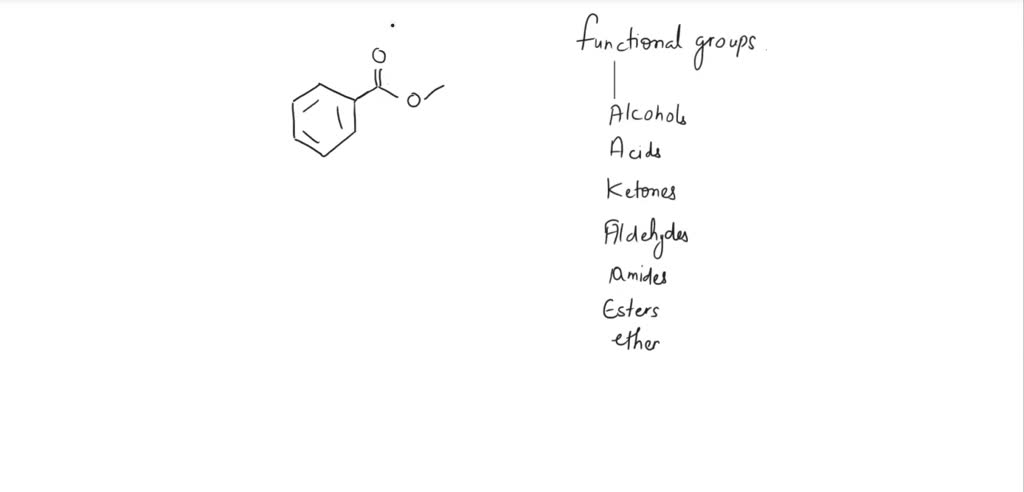 O
O
functional groups.
Alcohols
Acids
Ketones
Aldehydes
amides
Esters
ether